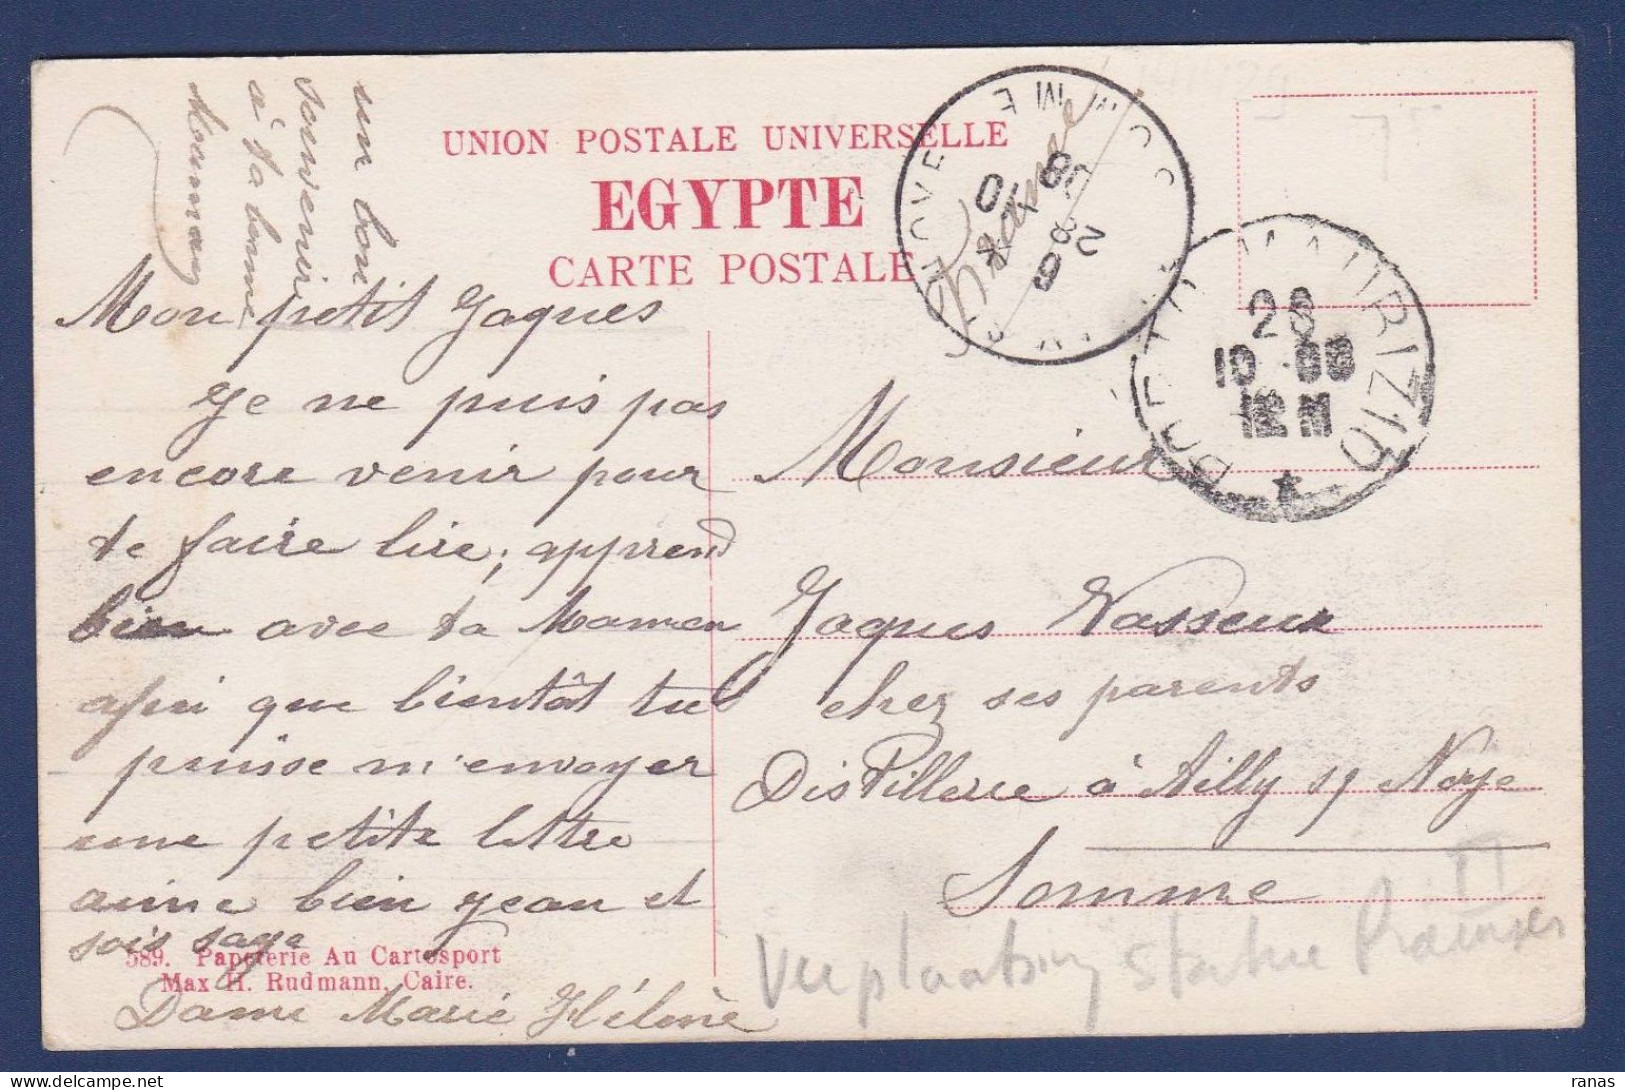 un bon
souvenir
a' ta bonne
Maman
UNION POSTALE UNIVERSELLE
EGYPTE
CARTE POSTALE
France
SOMME
2 8
10
08
PORTO MAURIZIO
26
10 08
12 M
Mon petit Jaques
Je ne puis pas
encore venir pour
te faire lire, apprend
bien avec ta Maman
afin que bientôt tu
puisse m'envoyer
une petite lettre
aime bien Jean et
sois sage
589. Papeterie Au Cartosport
Max H. Rudmann, Caire.
Dame Marie Hélène
Monsieur
Jaques Vasseur
chez ses parents
Distillerie à Ailly s/ Noye
Somme
Verplaatsing statue Ramses II